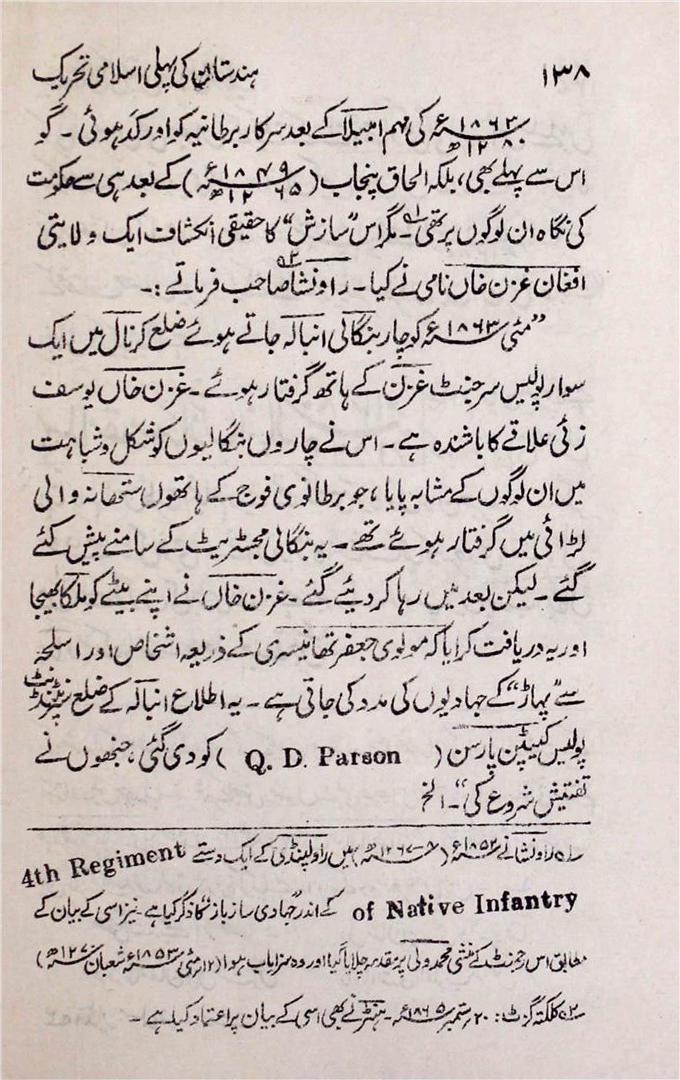 ۱۳۸ ہندستان کی پہلی اسلامی تحریک
۱۸۶۳ء ۱۲۸۰ھ کی مہم امبیلا کے بعد سرکار برطانیہ کو اور کد ہوئی ۔ گو
اس سے پہلے بھی، بلکہ الحاق پنجاب (۱۸۴۹ء ۱۲۶۵ھ) کے بعد ہی سے حکومت
کی نگاہ ان لوگوں پر تھی۱؎۔ مگر اس "سازش" کا حقیقی انکشاف ایک ولایتی
افغان غزن خاں نامی نے کیا۔ راونشا۲؎ صاحب فرماتے :۔
"مئی ۱۸۶۳ء کو چار بنگالی انبالہ جاتے ہوئے ضلع کرنال میں ایک
سوار پولیس سرجنٹ غزن کے ہاتھ گرفتار ہوئے ۔ غزن خاں یوسف
زئی علاقے کا باشندہ ہے ۔ اس نے چاروں بنگالیوں کو شکل و شباہت
میں ان لوگوں کے مشابہ پایا ، جو برطانوی فوج کے ہاتھوں ستھانہ والی
لڑائی میں گرفتار ہوئے تھے ۔ یہ بنگالی مجسٹریٹ کے سامنے پیش کئے
گئے ۔ لیکن بعد میں رہا کر دیئے گئے ۔ غزن خاں نے اپنے بیٹے کو ملکا بھیجا
اور یہ دریافت کرایا کہ مولوی جعفر تھانیسری کے ذریعہ اشخاص اور اسلحہ
سے "پہاڑ" کے جہادیوں کی مدد کی جاتی ہے ۔ یہ اطلاع انبالہ کے ضلع سپرنٹنڈنٹ
پولیس کیپٹن پارسن ( Q. D. Parson ) کو دی گئی ، جنھوں نے
تفتیش شروع کی"۔ الخ
۱؎ راونشا نے ۱۸۵۲ء (۸-۱۲۶۷ھ) میں راولپنڈی کے ایک دستے 4th Regiment
of Native Infantry کے اندر "جہادی ساز باز" کا ذکر کیا ہے ۔ نیز اسی کے بیان کے
مطابق اس رجمنٹ کے منشی محمد ولی پر مقدمہ چلایا گیا اور وہ سزایاب ہوا (۱۲؍مئی ۱۸۵۳ء شعبان ۱۲۷۰ھ)
۲؎ کلکتہ گزٹ : ۲۰؍ ستمبر ۱۸۶۵ء ۔ ہنٹر نے بھی اسی کے بیان پر اعتماد کیا ہے ۔